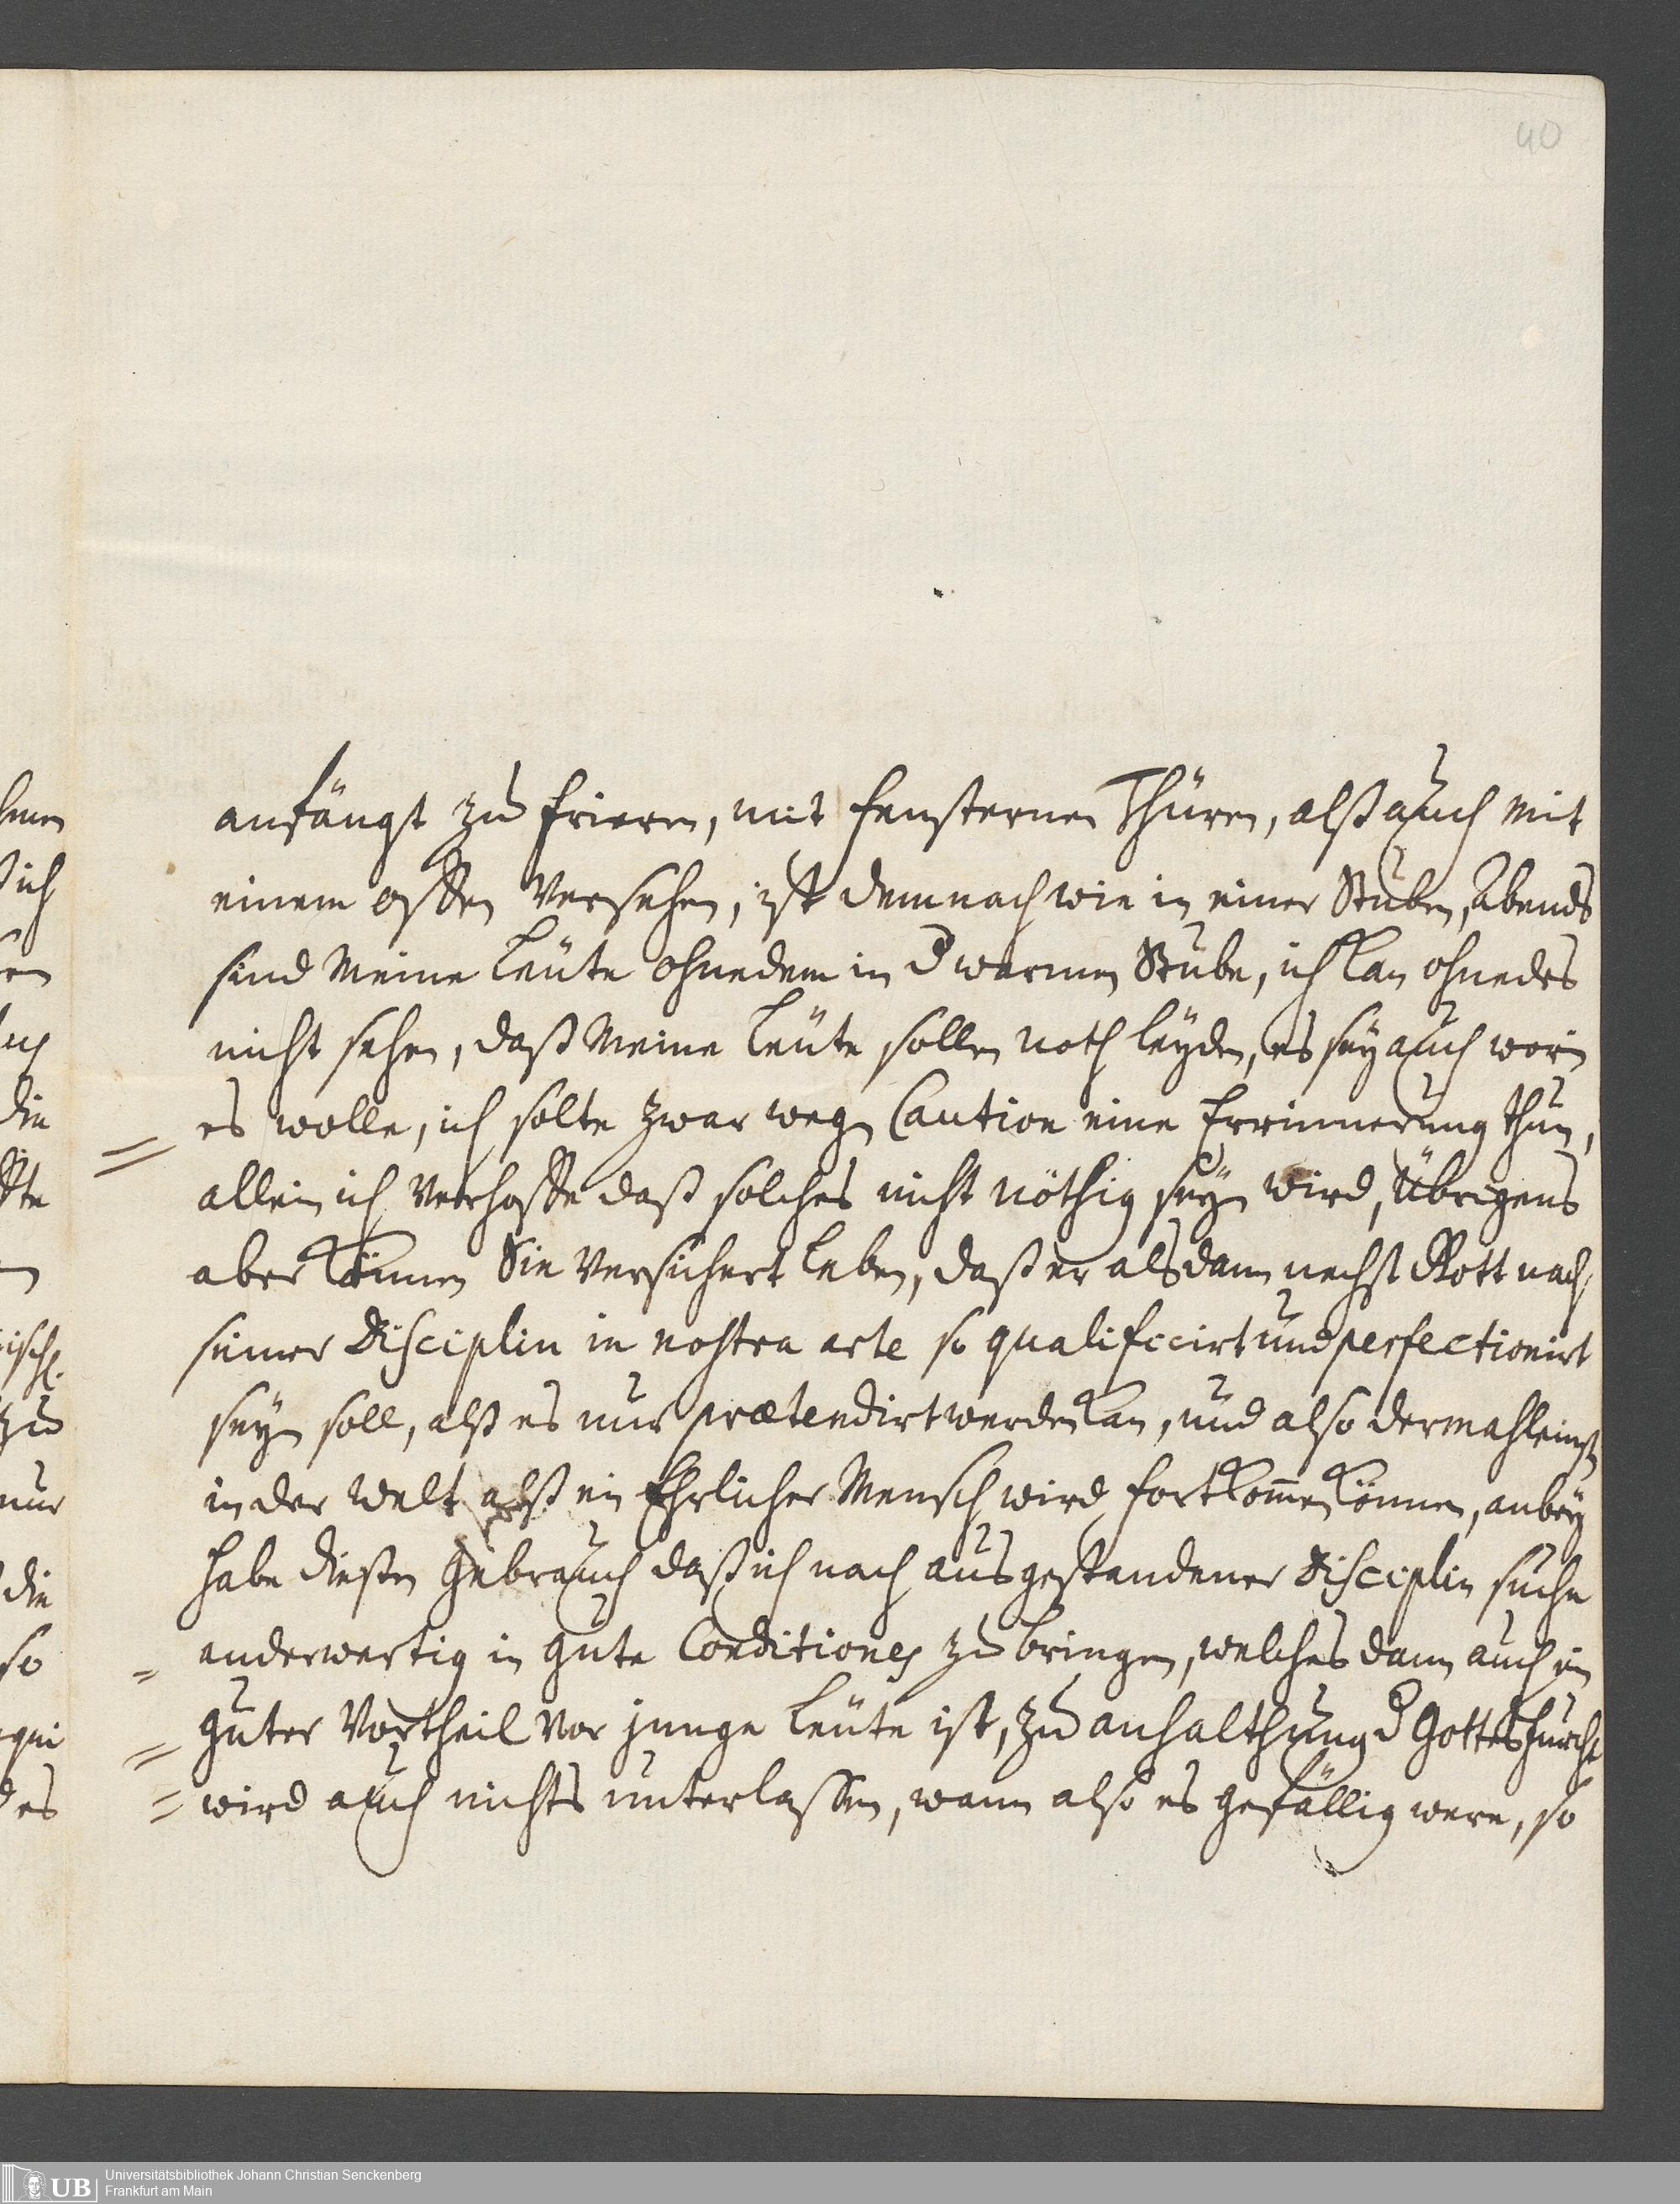 40
anfängt zu frieren, mit fensternen Thüren, alß auch mit
einem offen versehen, ist demnach wie in einer Stuben, Abends
sind meine leüte ohnedem in d warmen Stube, ich kan ohnedes
nicht sehen, daß meine leüte sollen noth leyden, es sey auch worin
es wolle, ich solte zwar wegen Caution eine Errinnerung thun,
allein ich verhoffe daß solches nicht nöthig seyn wird, übrigens
aber können Sie versichert leben, daß er alsdann nechst Gott nach
seiner Disciplin in nostra arte so qualificirt und perfectionirt
seyn soll, alß es nur prætendirt werden kan, und also dermahleinst
in der welt alß ein Ehrlicher Mensch wird fortkom̅en können, anbey
habe dießen Gebrauch daß ich nach ausgestandener Disciplin suche
anderwertig in gute Conditiones zu bringen, welches dann auch ein
guter Vortheil vor junge leüte ist, zu anhalthung d Gottesfurcht
wird auch nichts unterlassen, wann also es gefällig were, so
UB
Universitätsbibliothek Johann Christian Senckenberg
Frankfurt am Main